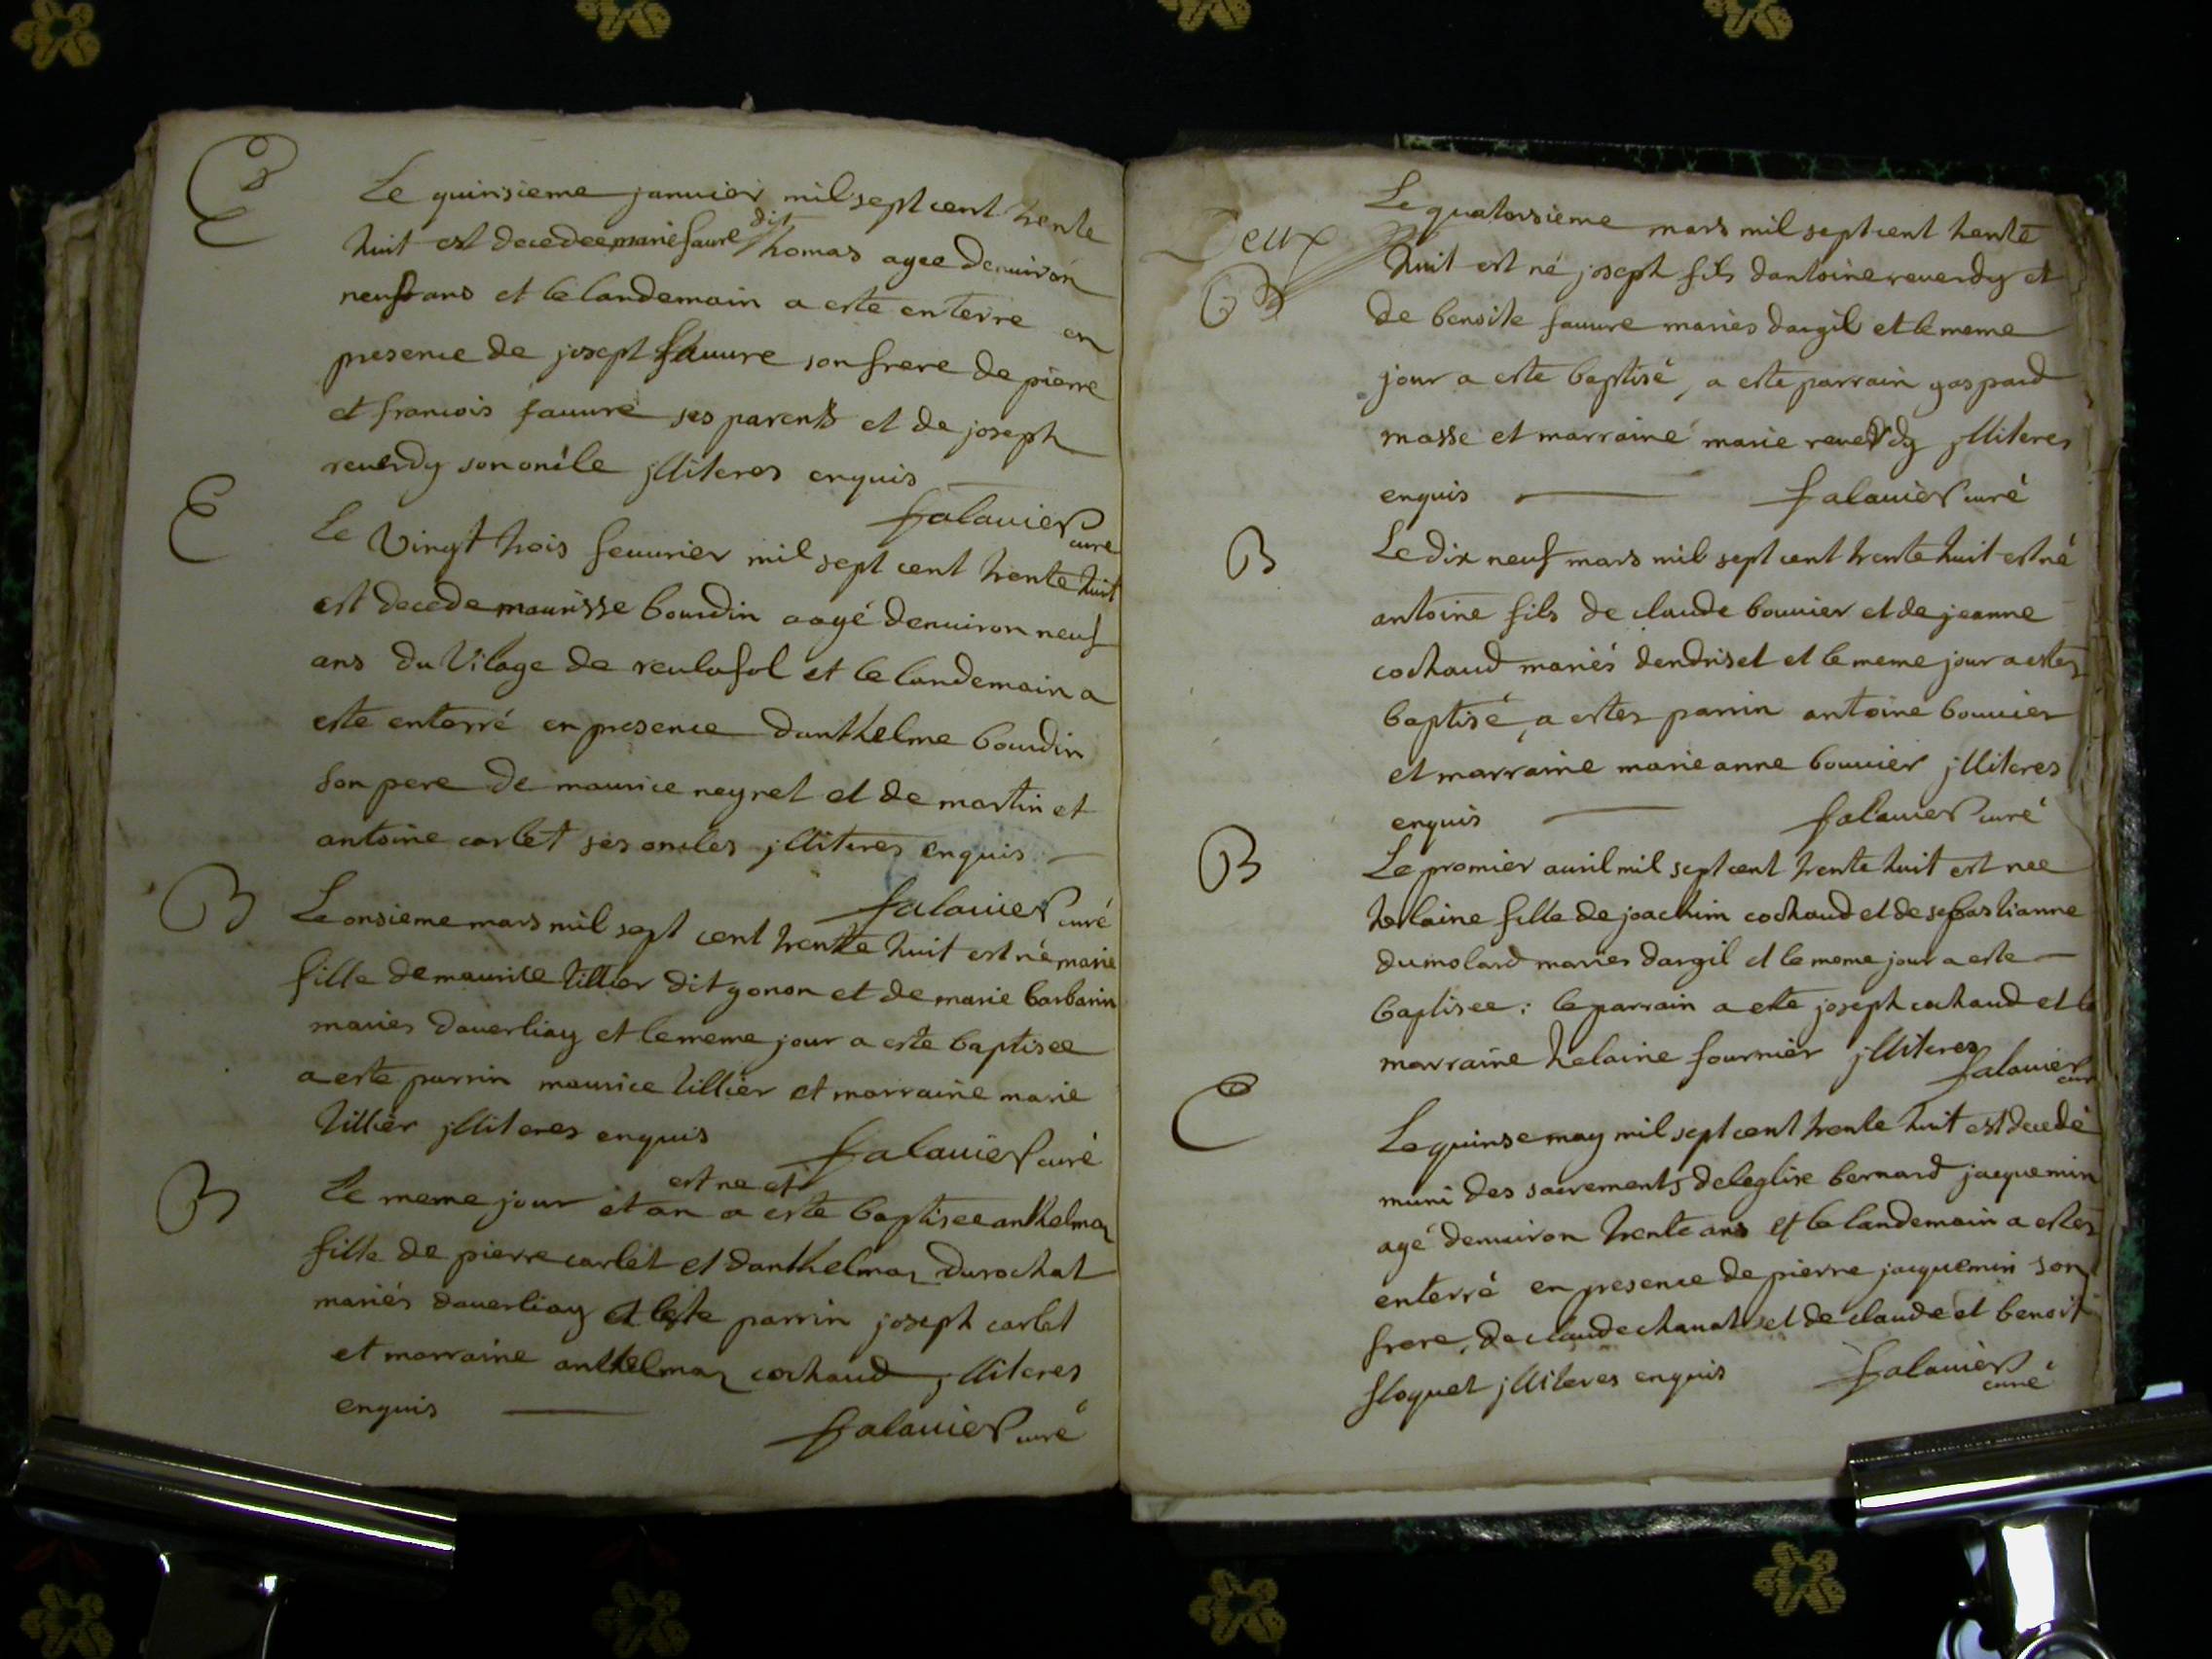 E
Le quinsieme januier mil sept cent trente
huit est decedee marie faure dit Thomas agee denuiron
neuf ans et le landemain a este enterre en
presence de joseph fauure son frere de pierre
et francois fauure ses parents et de joseph
reuerdy son oncle jlliteres enquis
falauier curé
E
Le vingt trois feuurier mil sept cent trente huit
est decede maurisse bourdin aagé denuiron neuf
ans du vilage de reulafol et le landemain a
este enterré en presence danthelme bourdin
son pere de maurice neyret et de martin et
antoine carlet ses oncles jlliteres enquis
falauier curé
B
Le onsieme mars mil sept cent trente huit est né marie
fille de maurice tillier dit gonon et de marie barbarin
maries dauerliay et le meme jour a este baptisee
a este parrin maurice tillier et marraine marie
tillier jlliteres enquis
falauier curé
B
Le meme jour et an est ne et a este baptisee anthelmaz
fille de pierre carlet et danthelmaz durochat
mariés dauerliay et parrin joseph carlet
et marraine anthelmaz cochaud jlliteres
enquis
falauier curé
Deux
B
Le quatorsieme mars mil sept cent trente
huit est né joseph fils dantoine reuerdy et
de benoite fauure mariés dargil et le meme
jour a este baptisé, a este parrain gaspard
masse et marraine marie reuerdy jlliteres
enquis falauier curé
B
Le dix neuf mars mil sept cent trente huit est né
antoine fils de claude bouuier et de jeanne
cochaud mariés dendriset et le meme jour a estez
baptisé, a estez parrin antoine bouuier
et marraine marie anne bouuier jlliteres
enquis falauier curé
B
Le premier auril mil sept cent trente huit est nee
helaine fille de joachim cochaud et de sebastianne
dumolard maries dargil et le meme jour a este
baptisee: le parrain a este joseph cochaud et la
marraine helaine fournier jlliteres
falauier curé
E
Le quinse may mil sept cent trente huit est decedé
muni des sacrements de leglise bernard jacquemin
agé denuiron trente ans et le landemain a estez
enterré en presence de pierre jacquemin son
frere, de claude chanat et de claude et benoit
floquet jlliteres enquis falauier curé